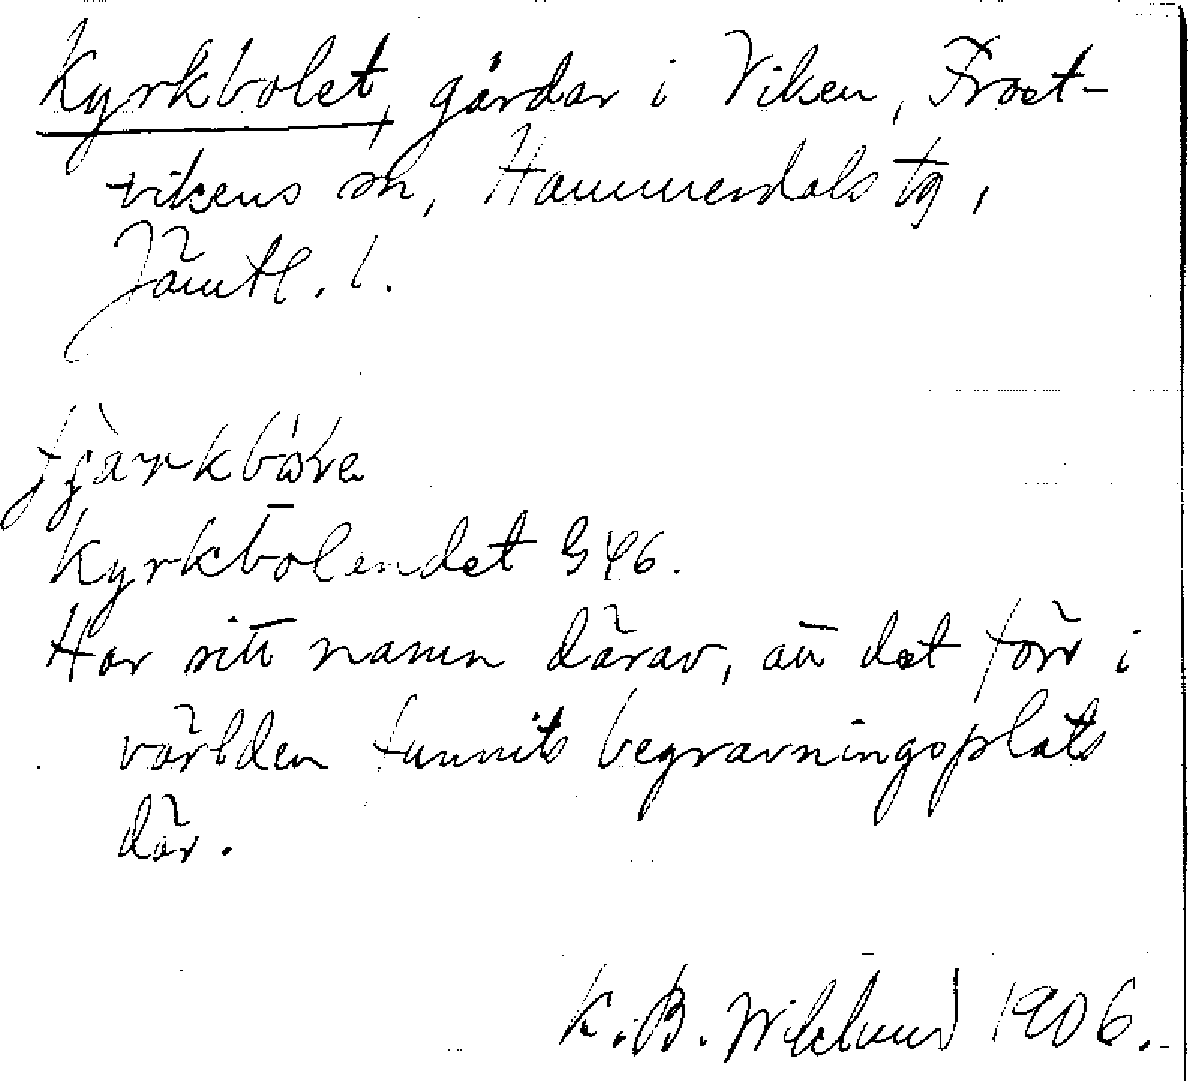 Kyrkbolet, gårdar i Viken, Frost-
vikens sn, Hammerdals tg,
Jämtl. l.
Kyrkbolandet G46.
Har sitt namn därav, att det förr i
världen funnits begravningsplats
där.
K. B. Wiklund 1906.